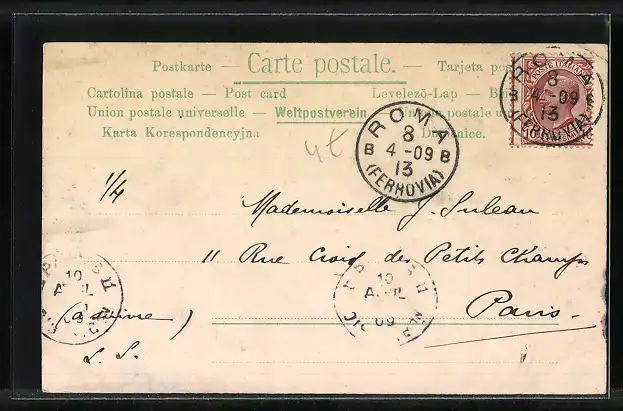 Postkarte — Carte postale. — Tarjeta
Cartolina postale — Post card Levelező-Lap —
Union postale universelle — Weltpostverein postale
Karta Korespondencyjna
4€
ROMA
8
B 4-09 B
13
(FERROVIA)
ROMA
8
B 4-09
13
(FERROVIA)
1/4
Mademoiselle J. Suleau
11 Rue Croix des Petits Champs
Paris
(à suivre)
10
09
10
09